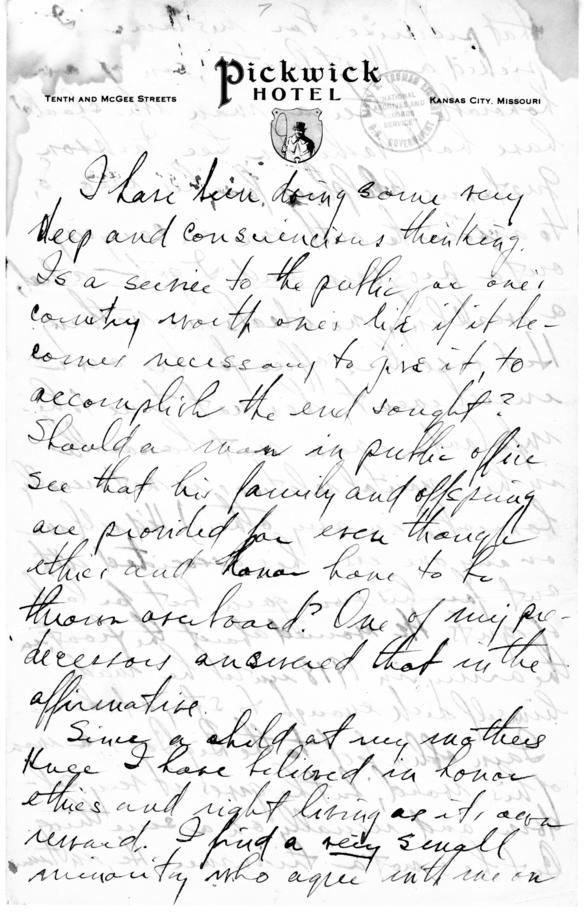 Pickwick
HOTEL
TENTH AND MCGEE STREETS
KANSAS CITY, MISSOURI
I have been doing some very
deep and consciencious thinking.
Is a service to the public or one's
country worth one's life if it be-
comes necessary to give it, to
accomplish the end sought?
Should a man in public office
see that his family and offspring
are provided for even though
ethics and honor have to be
thrown overboard? One of my pre-
decessors answered that in the
affirmative.
Since a child at my mothers
knee I have believed in honor
ethics and right living as its own
reward. I find a very small
minority who agree with me on